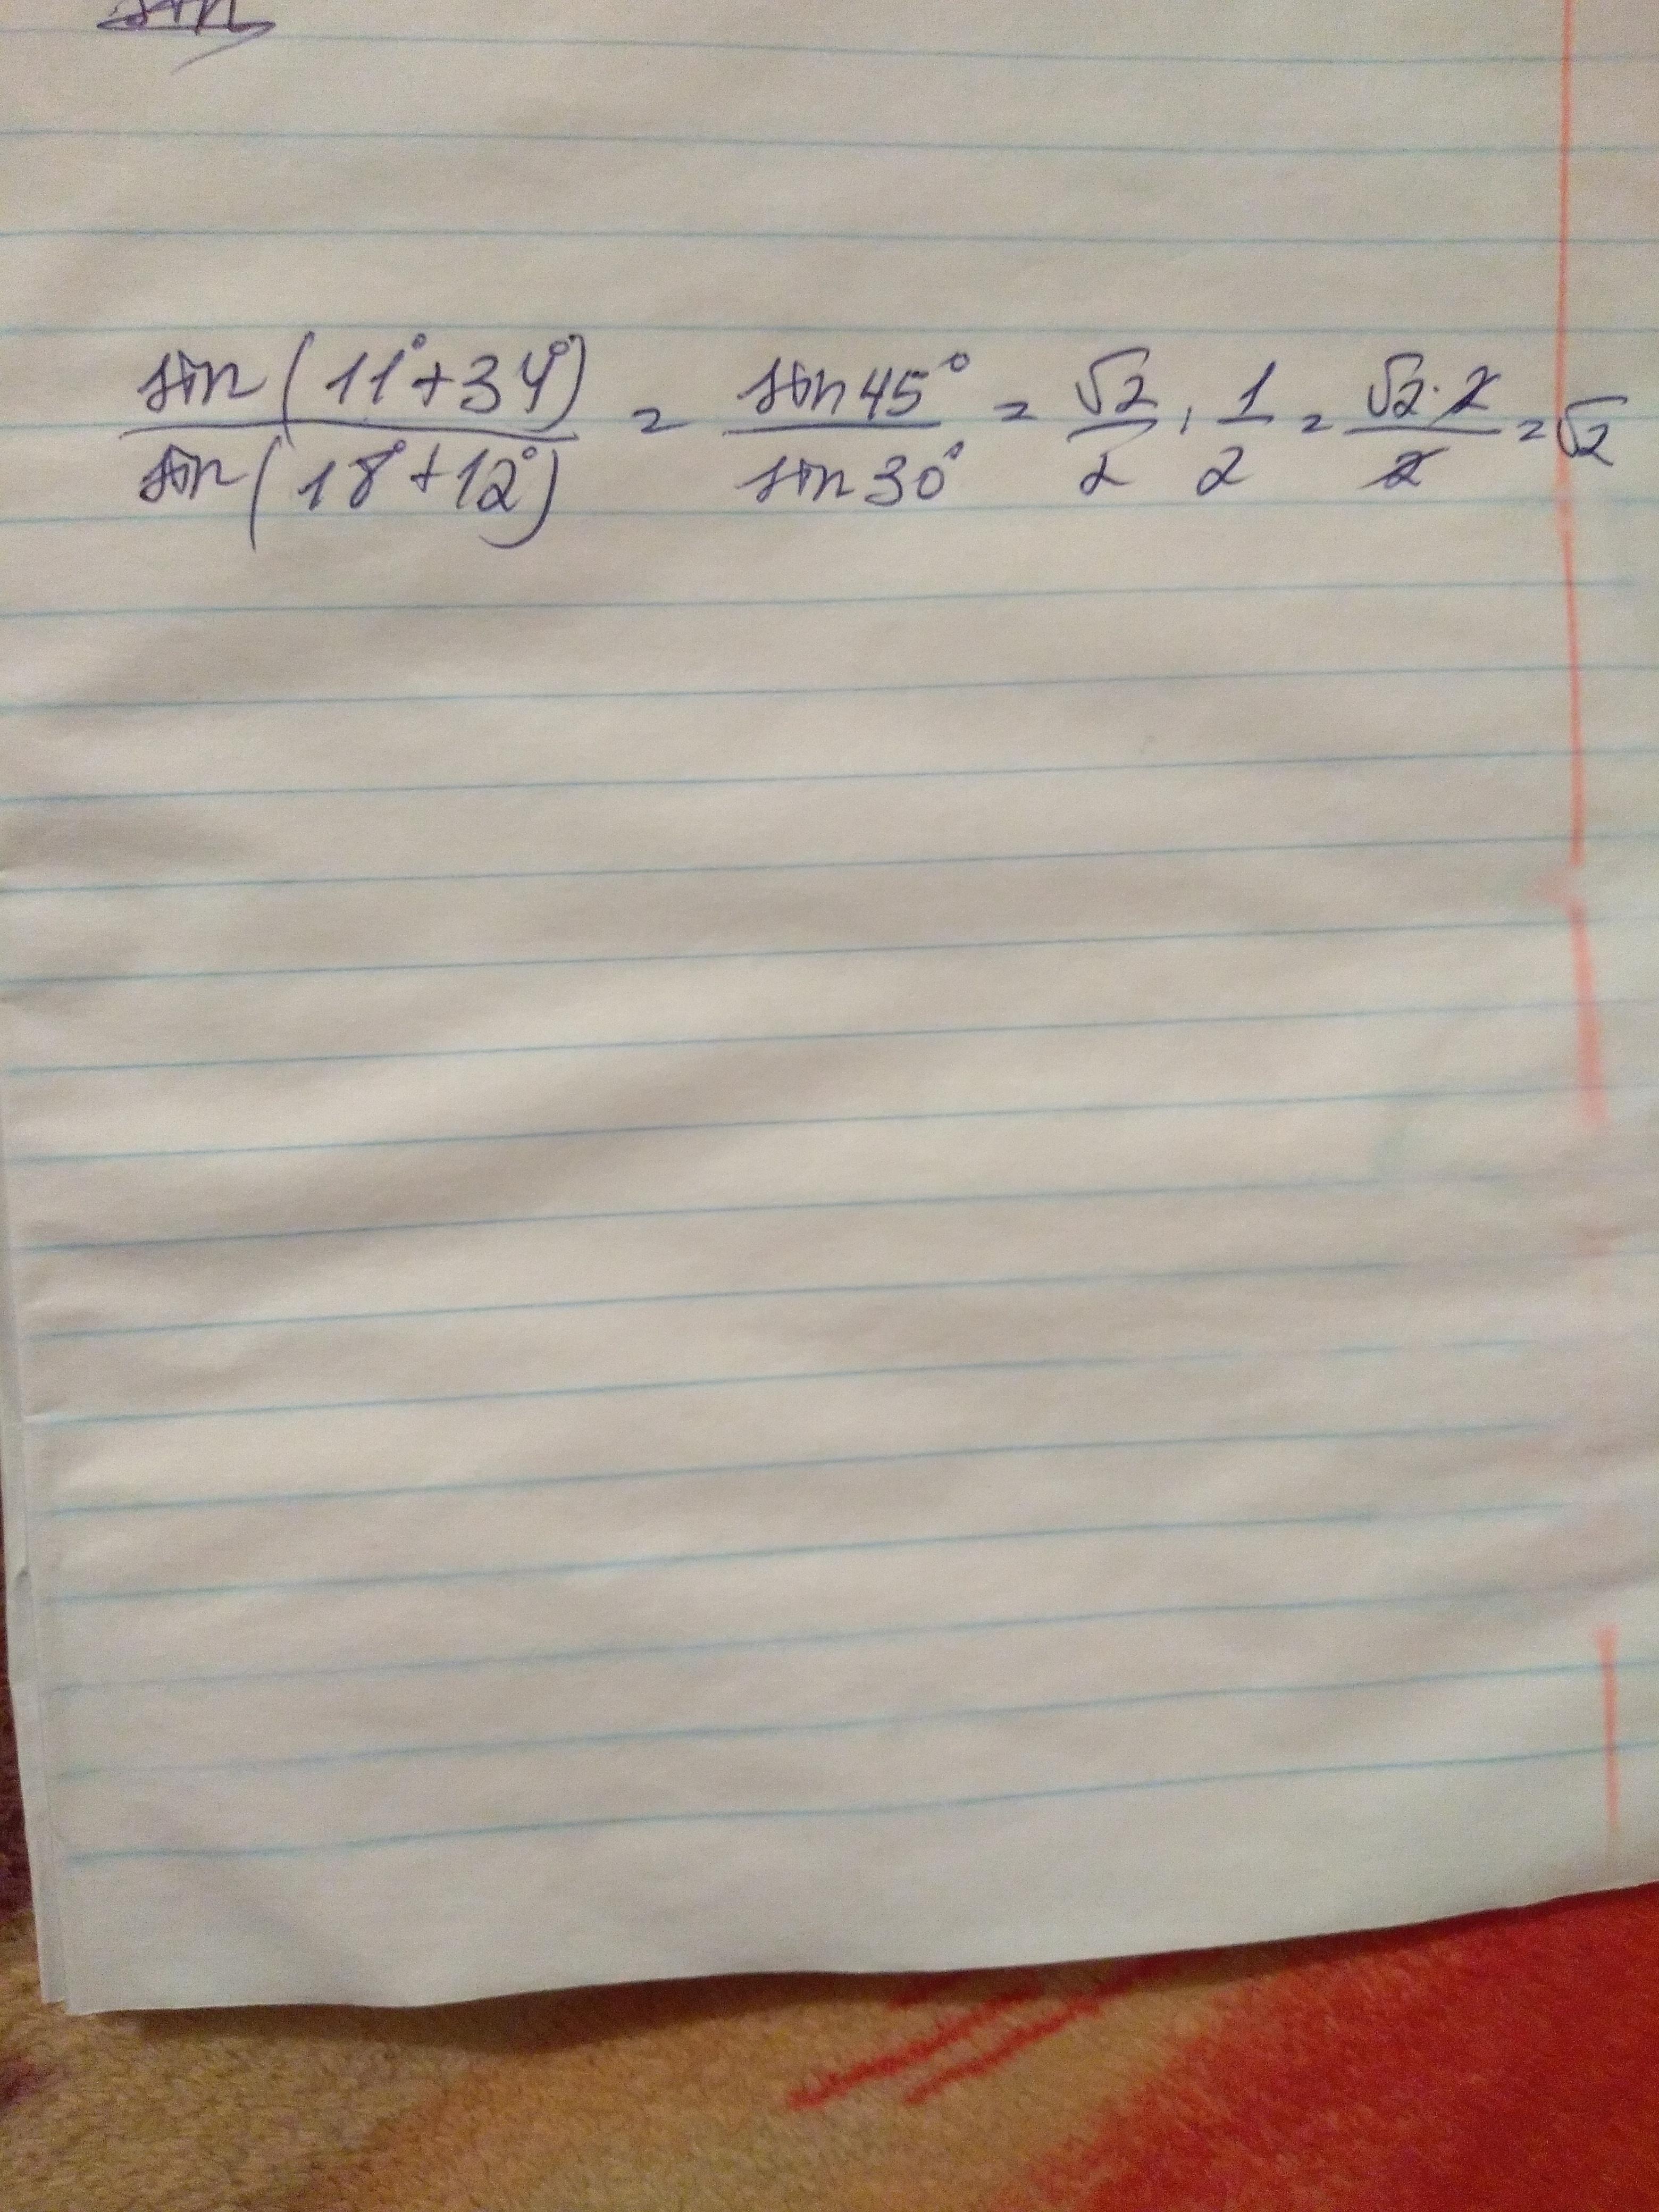 sin
sin(11°+34°)/sin(18°+12°) = sin45°/sin30° = √2/2 : 1/2 = √2·2/2 = √2